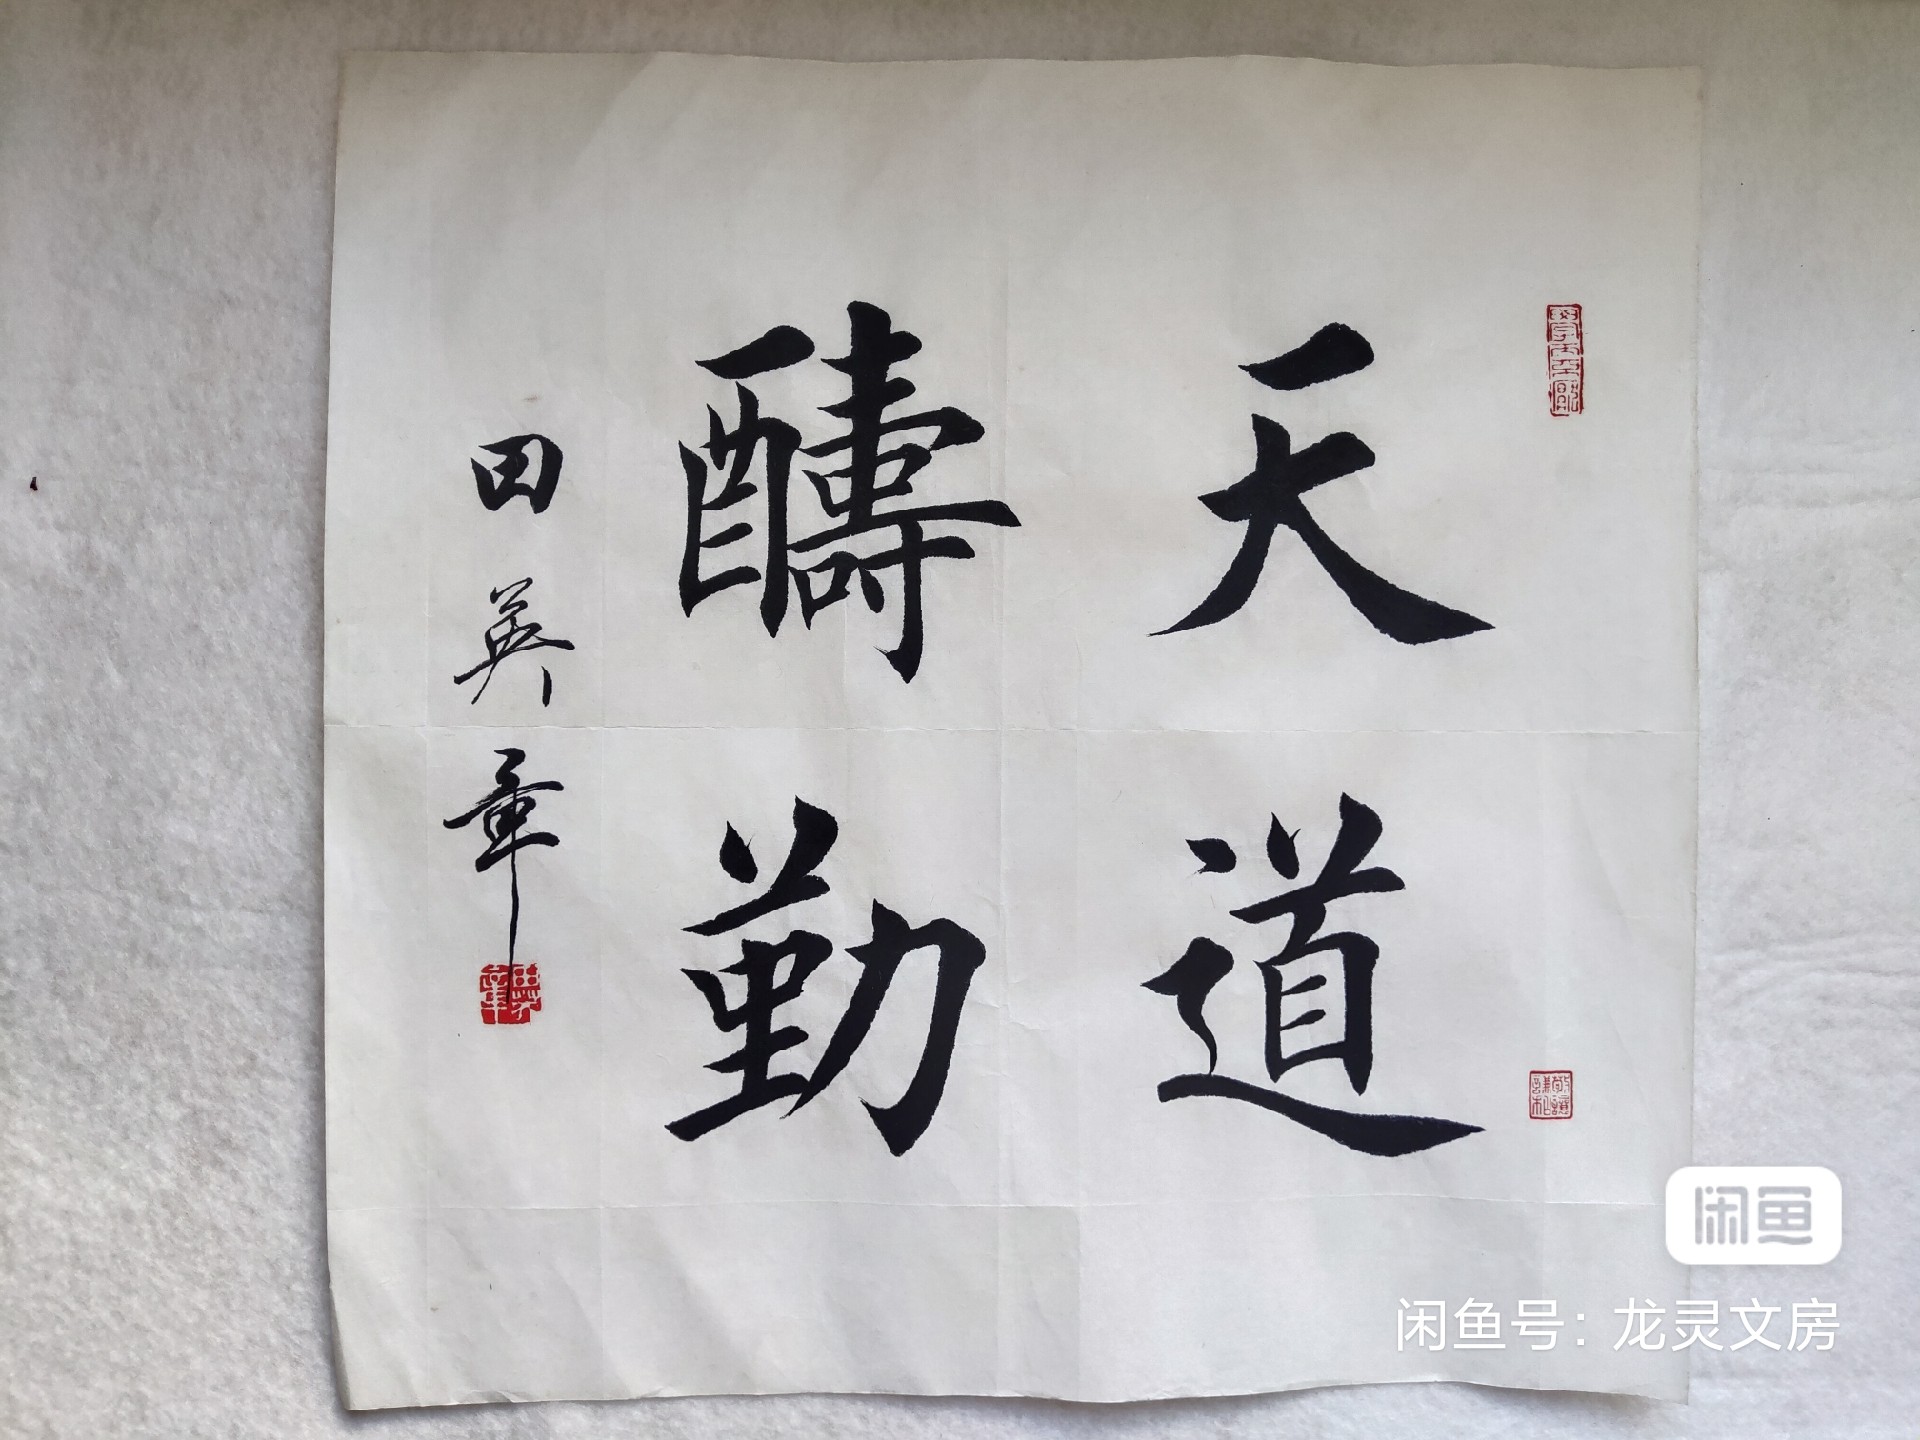 天道
醻勤
田英章
英章
闲鱼
闲鱼号：龙灵文房